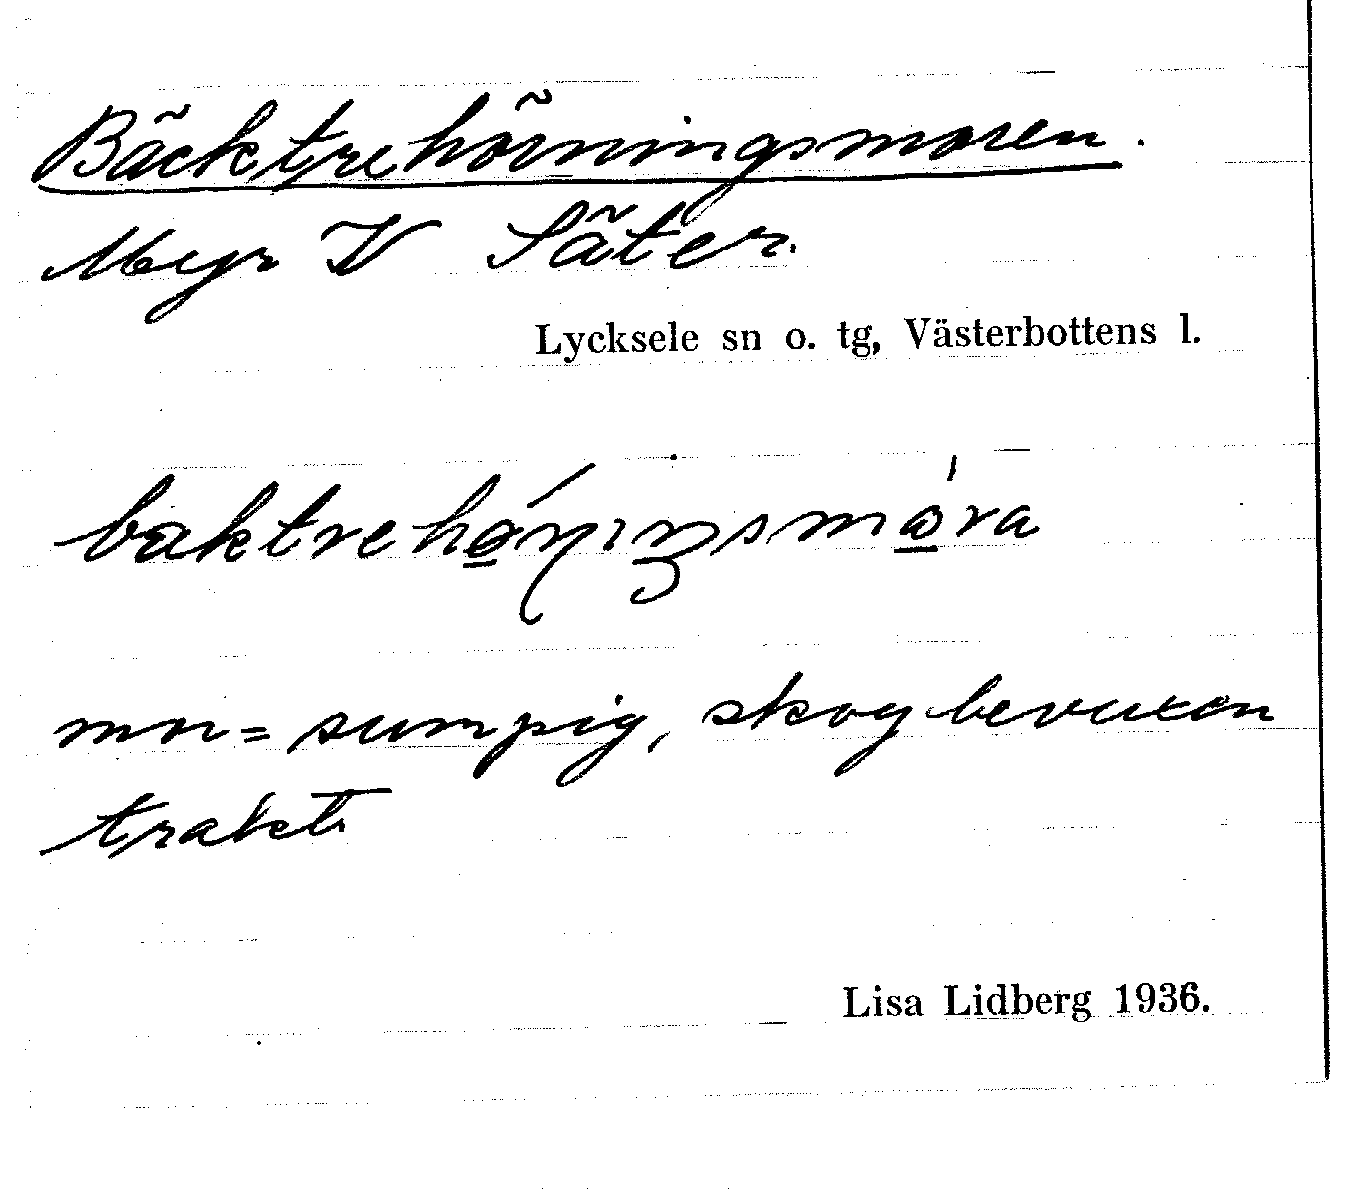 Bäcktrehörningsmoren.
Myr V Säter.
Lycksele sn o. tg, Västerbottens l.
baktrehǿṇıŋsmo̱̍ra
mn = sumpig, skogbevuxen
trakt
Lisa Lidberg 1936.